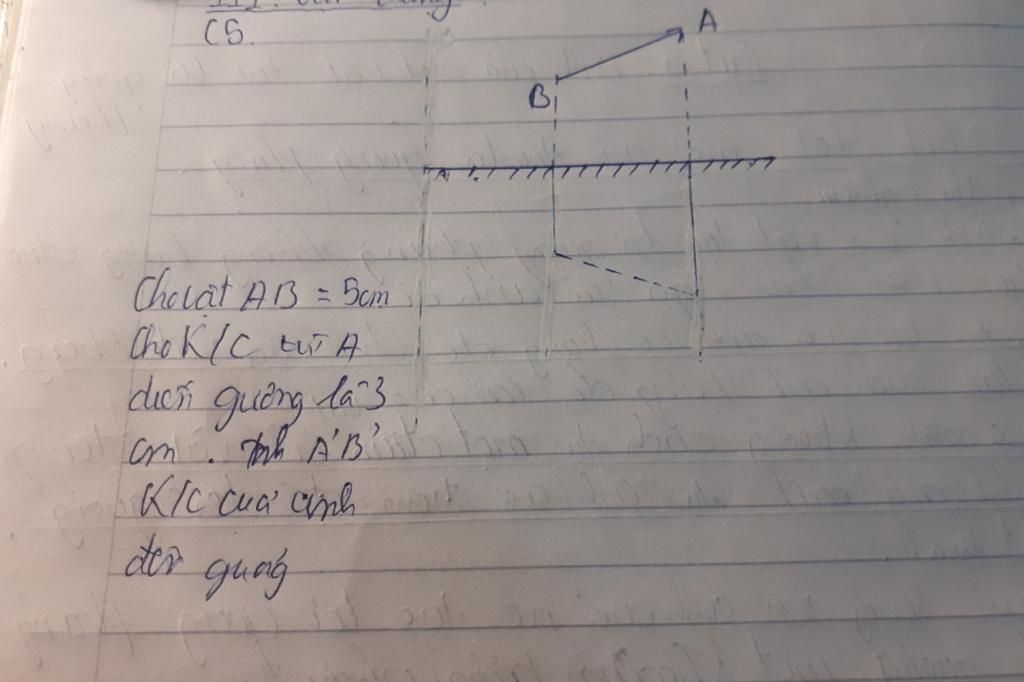 C5.
A
B
Cho vật AB = 5cm
Cho K/C từ A
đến gương là 3
cm. Tính A'B'
K/C của ảnh
đến gương